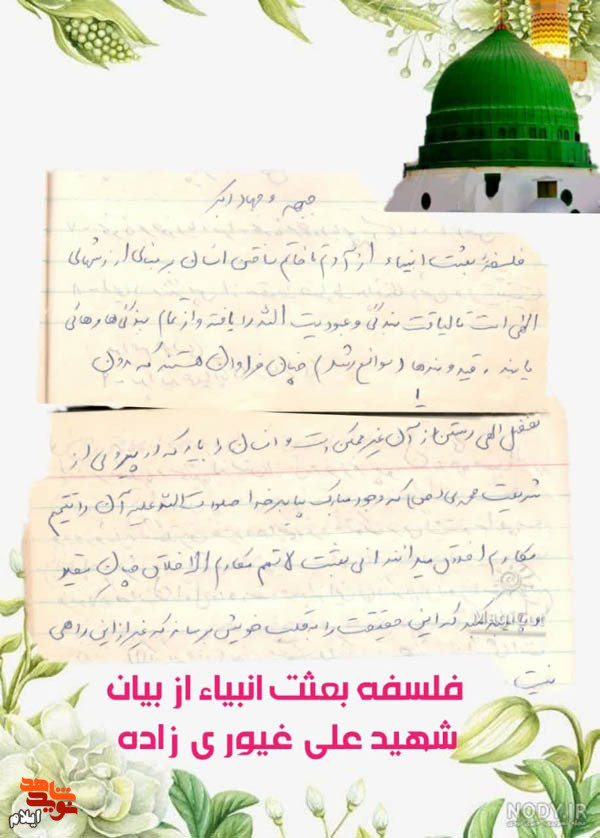 جبهه و جهاد اکبر
فلسفه بعثت انبیاء از آدم تا خاتم ساختن انسان بر مبنای ارزشهای
الهی است تا لیاقت بندگی و عبودیت الله را یافته و از تمام بندگی‌ها رهائی
یابند. قید و بندها (موانع رشد) چنان فراوان هستند که بدون
فضل الهی رستن از آن غیر ممکن است و انسان را باید که در پیروی از
شریعت محمدی (ص) که وجود مبارک پیامبر خدا صلوات الله علیه آن را تتمیم
مکارم اخلاق میدانند انی بعثت لاتمم مکارم الاخلاق چنان مقید
که این حقیقت را به قلب خویش برساند که غیر از این راهی
نیست.
فلسفه بعثت انبیاء از بیان
شهید علی غیوری زاده
نوید شاهد
ایلام
NODY.IR